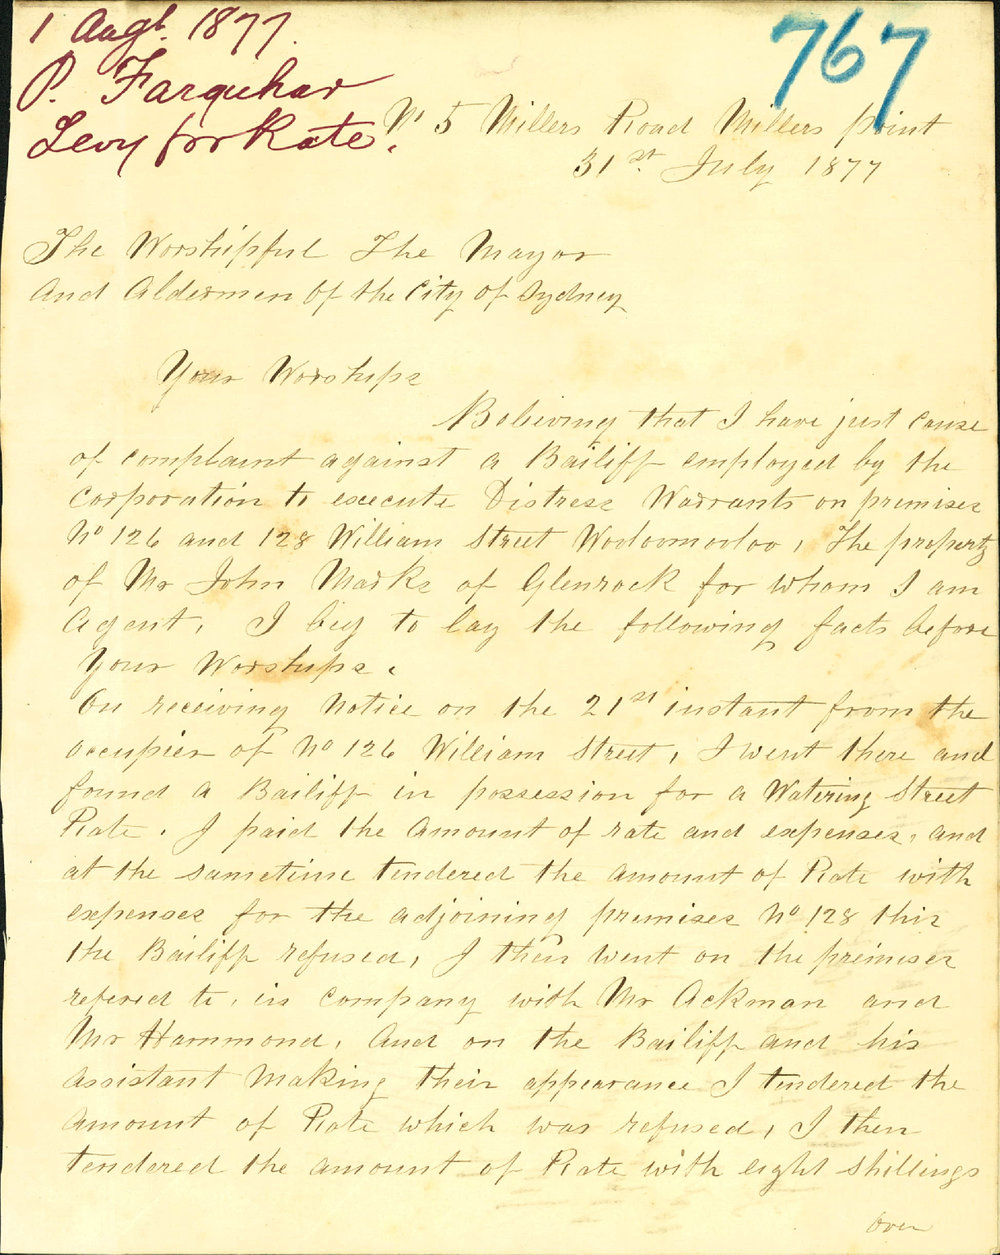 1 Augt. 1877.
P. Farquhar
Levy for Rate.
767
No 5 Millers Road Millers point
31st. July 1877
The Worshipful The Mayor
And Aldermen of the City of Sydney
Your Worships
Believing that I have just cause
of complaint against a Bailiff employed by the
Corporation to execute Distress Warrants on premises
No 126 and 128 William Street Wooloomooloo, The property
of Mr John Marks of Glenrock for whom I am
Agent. I beg to lay the following facts before
Your Worships.
On receiving Notice on the 21st instant from the
occupier of No 126 William Street, I went there and
found a Bailiff in possession for a Watering Street
Rate. I paid the amount of rate and expenses, and
at the sametime tendered the amount of Rate with
expenses for the adjoining premises No 128 this
the Bailiff refused, I then went on the premises
refered to, in company with Mr Ackman and
Mr Hammond, And on the Bailiff and his
Assistant Making their appearance I tendered the
amount of Rate which was refused, I then
tendered the amount of Rate with eight shillings
over